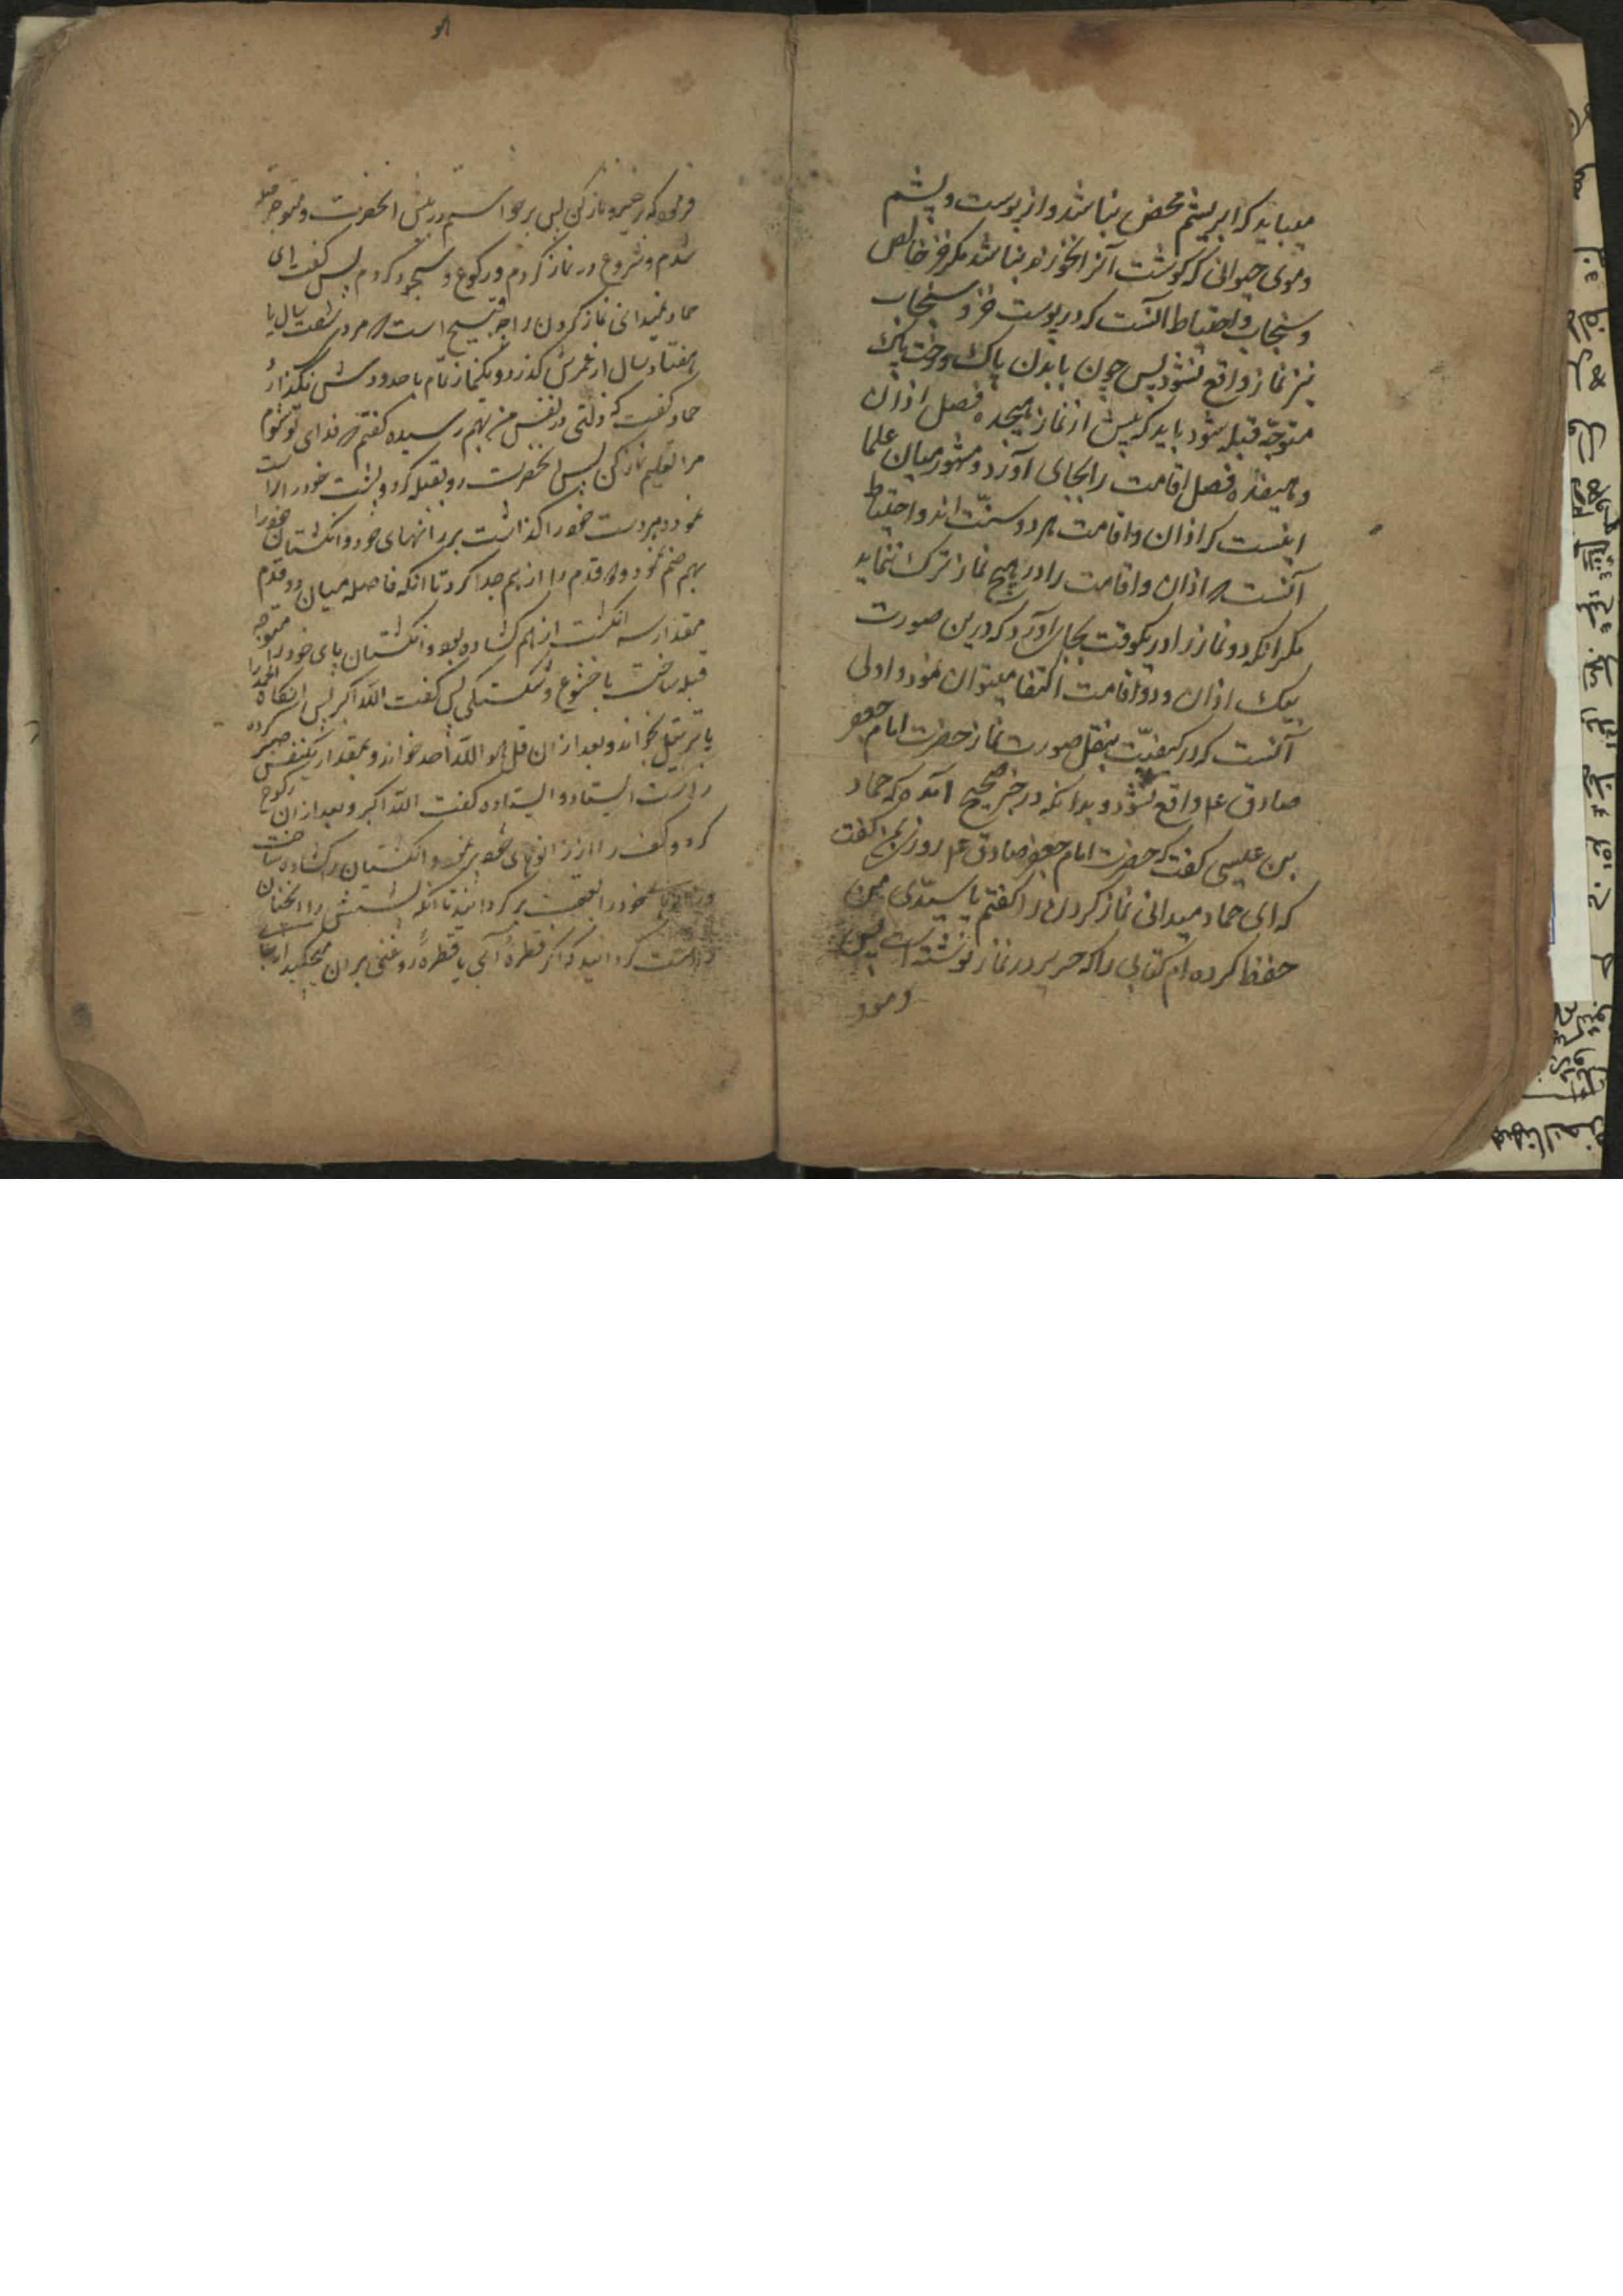 میباید که ابریشم محض نباشد و از پوست و پشم
و موی حیوانی که گوشت آنرا نخورند نباشد مگر خز خالص
و سنجاب و احتیاط آنست که در پوست خز و سنجاب
نیز نماز واقع نشود پس چون با بدن پاک و رخت پاک
متوجّه قبله شود باید که پیش از نماز هیجده فصل اذان
و هیفده فصل اقامت را بجای آورد و مشهور میان علما
اینست که اذان و اقامت هر دو سنّت اند و احتیاط
آنست که اذان و اقامت را در هیچ نماز ترک ننماید
مگر آنکه دو نماز را در یکوقت بجای آورد که درین صورت
بیک اذان و دو اقامت اکتفا میتوان نمود و اولی
آنست که در کیفیّت بنقل صورت نماز حضرت امام جعفر
صادق ع م واقع شود و بدانکه در خبر صحیح آمده که حماد
بن عیسی گفت که حضرت امام جعفر صادق ع م روزی بمن گفت
که ای حماد میدانی نماز کردن را گفتم یا سیّدی من
حفظ کرده ام کتابی را که حریز در نماز نوشته است پس
فرمود که برخیز و نماز کن پس برخواستم در پیش آنحضرت و متوجه قبله
شدم و شروع در نماز کردم و رکوع و سجود کردم پس گفت ای
حماد نمیدانی نماز کردن را چه قبیح است که مرد شصت سال یا
هفتاد سال از عمرش گذرد و یکنماز تمام با حدودش نگذارد
حماد گفت که ذلتی در نفس من بهم رسیده گفتم که فدای تو شوم
مرا تعلیم نماز کن پس آنحضرت رو بقبله کرد و پشت خود را راست
نمود و هر دو دست خود را گذاشت بر رانهای خود و انگشتان خود را
بهم ضم نمود و دو قدم را از هم جدا کرد تا آنکه فاصله میان دو قدم
مقدار سه انگشت از هم گشاده بود و انگشتان پای خود را متوجه
قبله ساخت با خشوع و شکستگی پس گفت اللّه اکبر پس آنگاه الحمد را
با ترتیل بخواند و بعد از آن قل هو اللّه احد خواند و بمقدار یکنفس صبر کرده
راست ایستاد و ایستاده گفت اللّه اکبر و بعد از آن رکوع
کرد و کف را از زانوهای خود پر نمود و انگشتان را گشاده ساخت
خود را بعقب برگردانید تا آنکه پشتش را آنچنان
راست گردانید که اگر قطرهٔ آبی یا قطرهٔ روغنی بر آن میچکید از جا